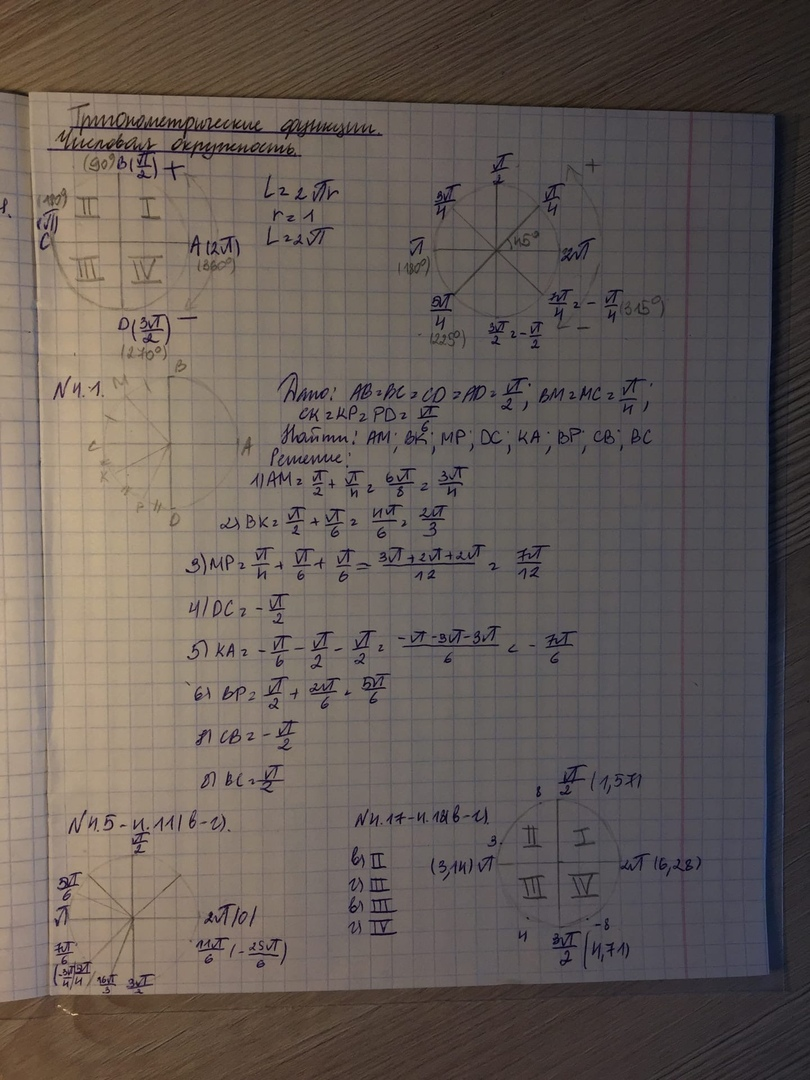 Тригонометрические функции.
Числовая окружность.
(90°) B(π/2) +
(180°)
(π)
C
II I
III IV
A(2π)
(360°)
D(3π/2) −
(270°)
L = 2πr
r = 1
L = 2π
π/2
+
3π/4 π/4
π 45° 2π
(180°)
5π/4
(225°)
3π/2 = -π/2
7π/4 = -π/4 (315°)
−
N4.1.
B
M
C A
K
P
D
Дано: AB=BC=CD=AD=π/2; BM=MC=π/4;
CK=KP=PD=π/6
Найти: AM; BK; MP; DC; KA; BP; CB; BC
Решение:
1) AM = π/2 + π/4 = 6π/8 = 3π/4
2) BK = π/2 + π/6 = 4π/6 = 2π/3
3) MP = π/4 + π/6 + π/6 = (3π+2π+2π)/12 = 7π/12
4) DC = -π/2
5) KA = -π/6 - π/2 - π/2 = (-π-3π-3π)/6 = -7π/6
6) BP = π/2 + 2π/6 = 5π/6
7) CB = -π/2
8) BC = π/2
N4.5 - 4.11(в-г).
π/2
5π/6
π 2π(0)
7π/6
11π/6 (-25π/6)
16π/3 3π/2
N4.17-4.18(в-г).
в) II
г) III
в) III
г) IV
8 π/2 (1,57)
3
II I
(3,14) π 2π (6,28)
III IV
4 -8
3π/2 (4,71)